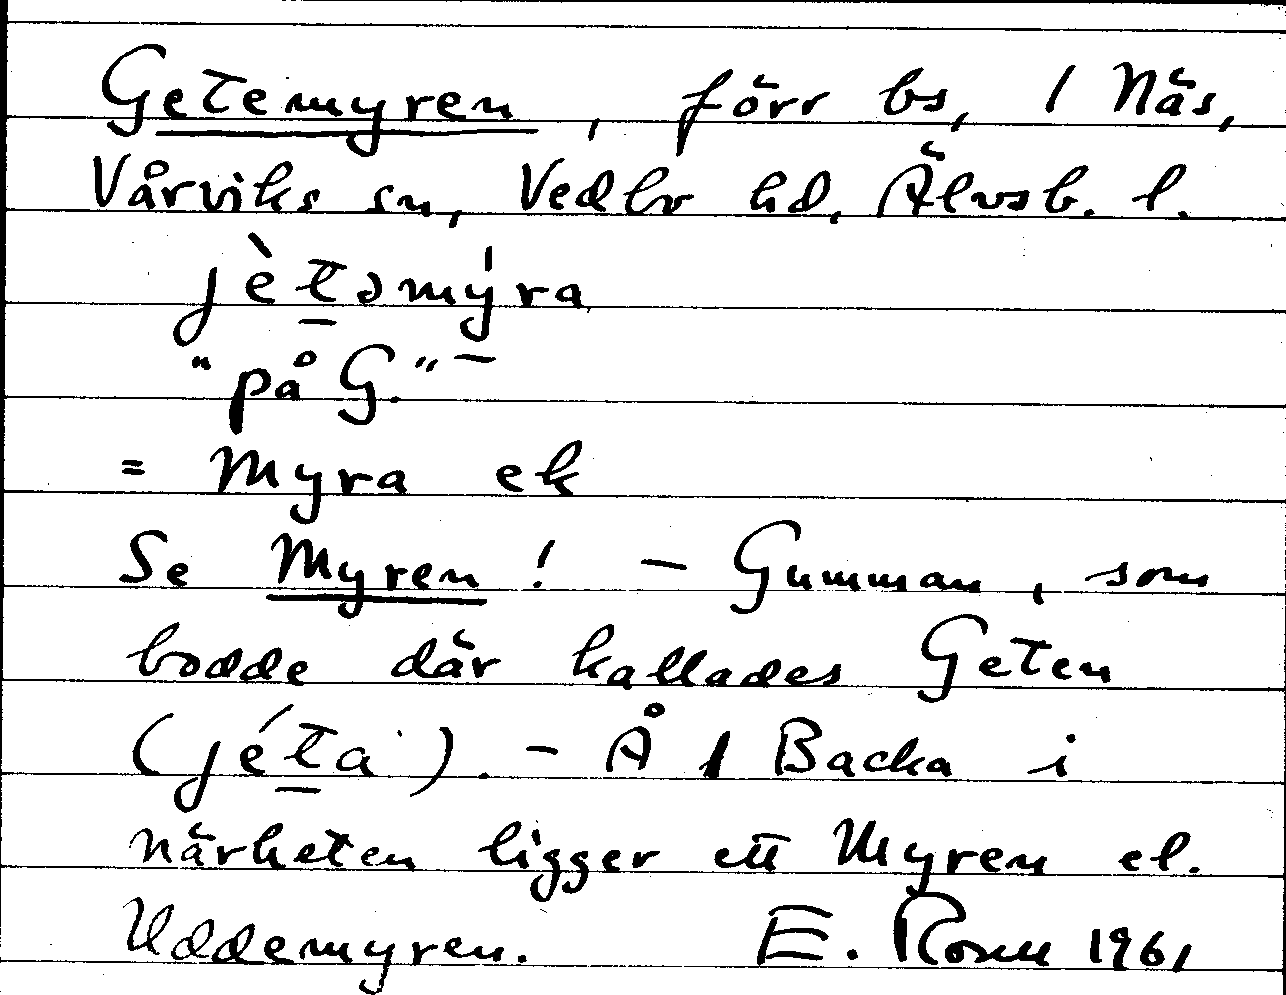 Getemyren, förr bs, 1 Näs,
Vårviks sn, Vedbo hd, Älvsb. l.
jètəmýra
"på G." –
= Myra ek
Se Myren! – Gumman, som
bodde där kallades Geten
(jéta). – Å 1 Backa i
närheten ligger ett Myren el.
Uddemyren. E. Rosell 1961